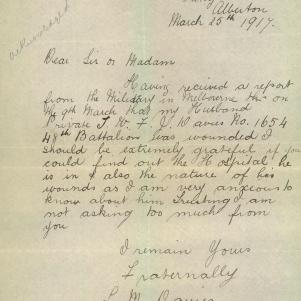 acknowledged
Alberton
March 25th 1917.
Dear Sir or Madam
Having received a report
from the Military in Melbourne on
9th March that my Husband
Private J. W. F. Davies No. 1654
48th Battalion was wounded I
should be extremely grateful if you
could find out the Hospital he
is in & also the nature of his
wounds as I am very anxious to
know about him Trusting I am
not asking too much from
you
I remain Yours
Fraternally
L M Davies